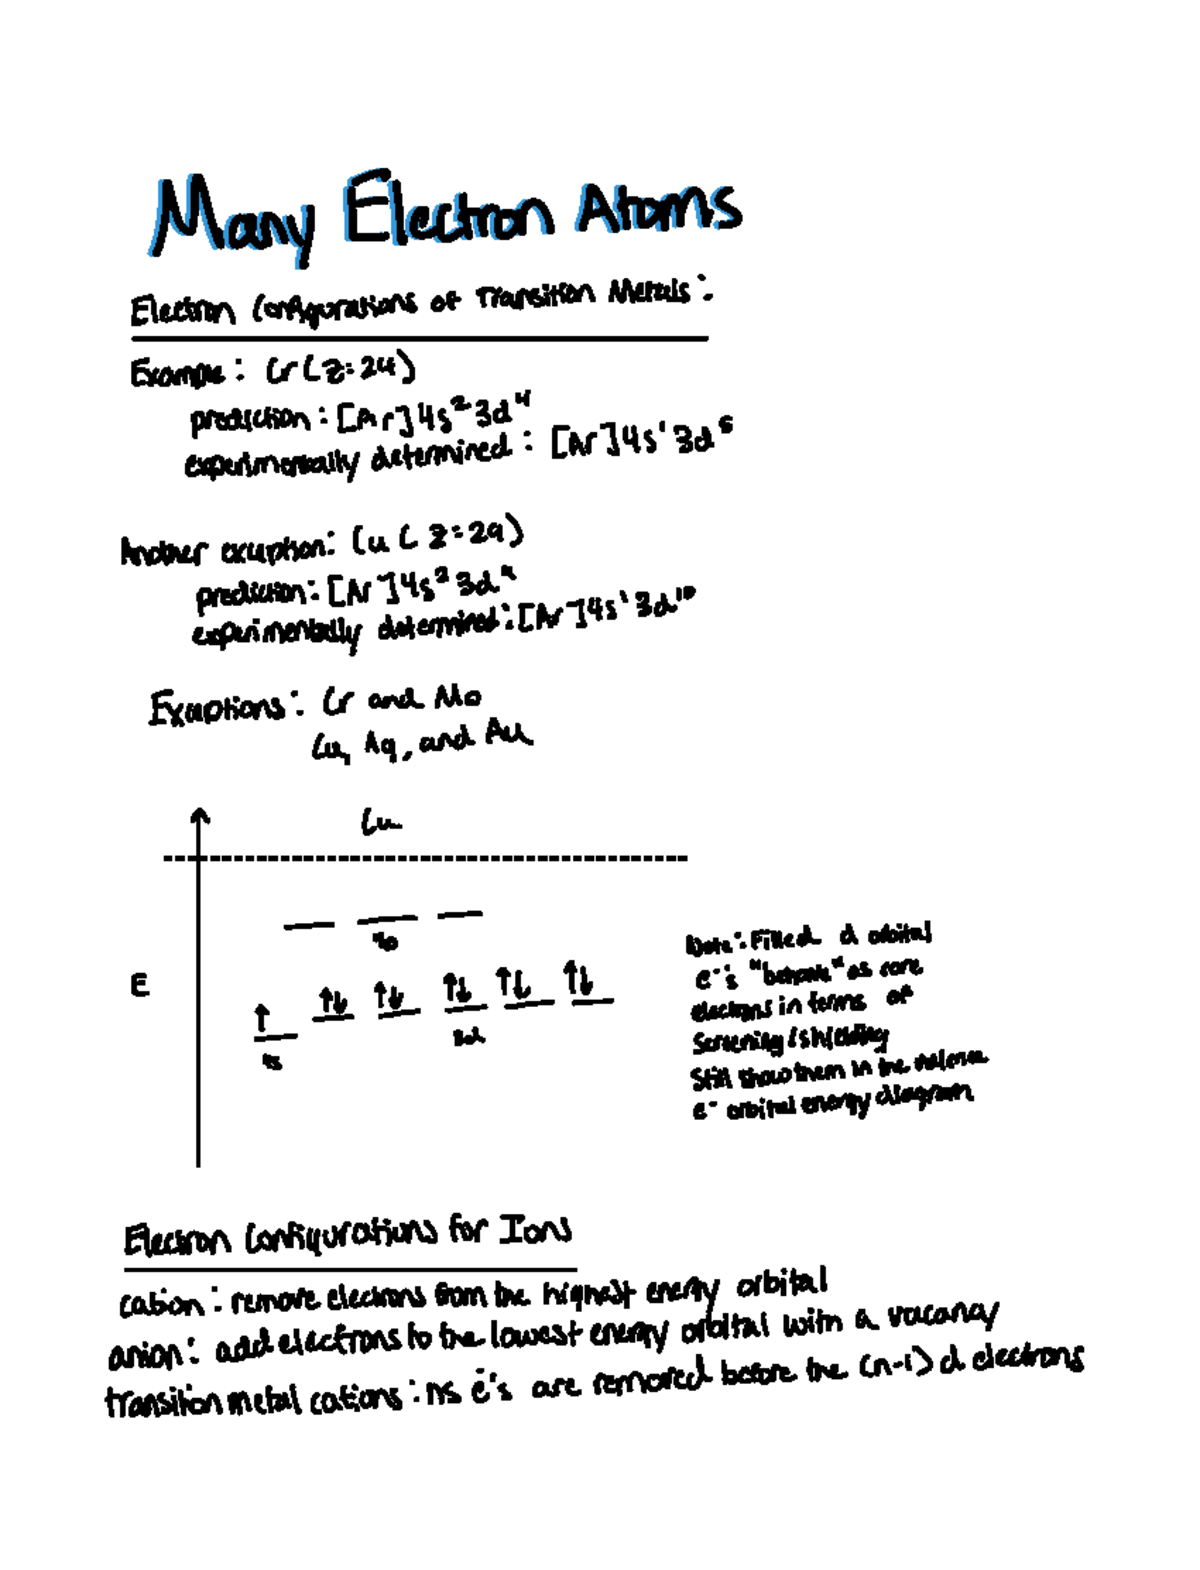 Many Electron Atoms
Electron Configurations of Transition Metals:
Example: Cr (Z=24)
prediction: [Ar]4s²3d⁴
experimentally determined: [Ar]4s¹3d⁵
Another exception: Cu (Z=29)
prediction: [Ar]4s²3d⁹
experimentally determined: [Ar]4s¹3d¹⁰
Exceptions: Cr and Mo
Cu, Ag, and Au
Cu
4p
E
4s
3d
Note: Filled d orbital
e⁻'s "behave" as core
electrons in terms of
Screening/shielding
Still show them in the valence
e⁻ orbital energy diagram
Electron Configurations for Ions
cation: remove electrons from the highest energy orbital
anion: add electrons to the lowest energy orbital with a vacancy
transition metal cations: ns e⁻'s are removed before the (n-1) d electrons